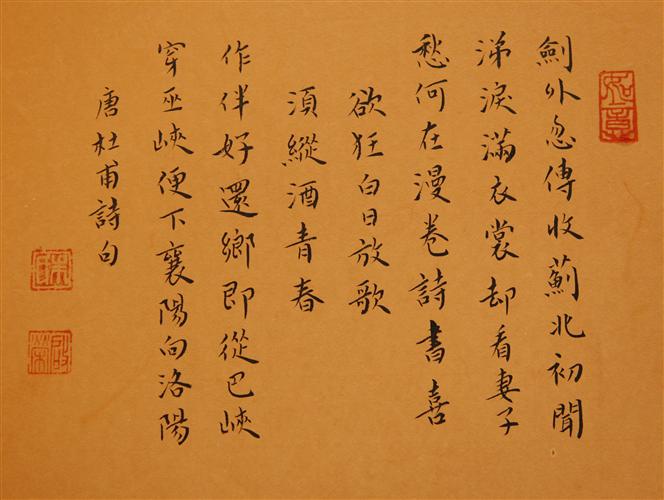 劍外忽傳收薊北初聞
涕淚滿衣裳却看妻子
愁何在漫卷詩書喜
欲狂白日放歌
須縱酒青春
作伴好還鄉即從巴峽
穿巫峽便下襄陽向洛陽
唐杜甫詩句
如意